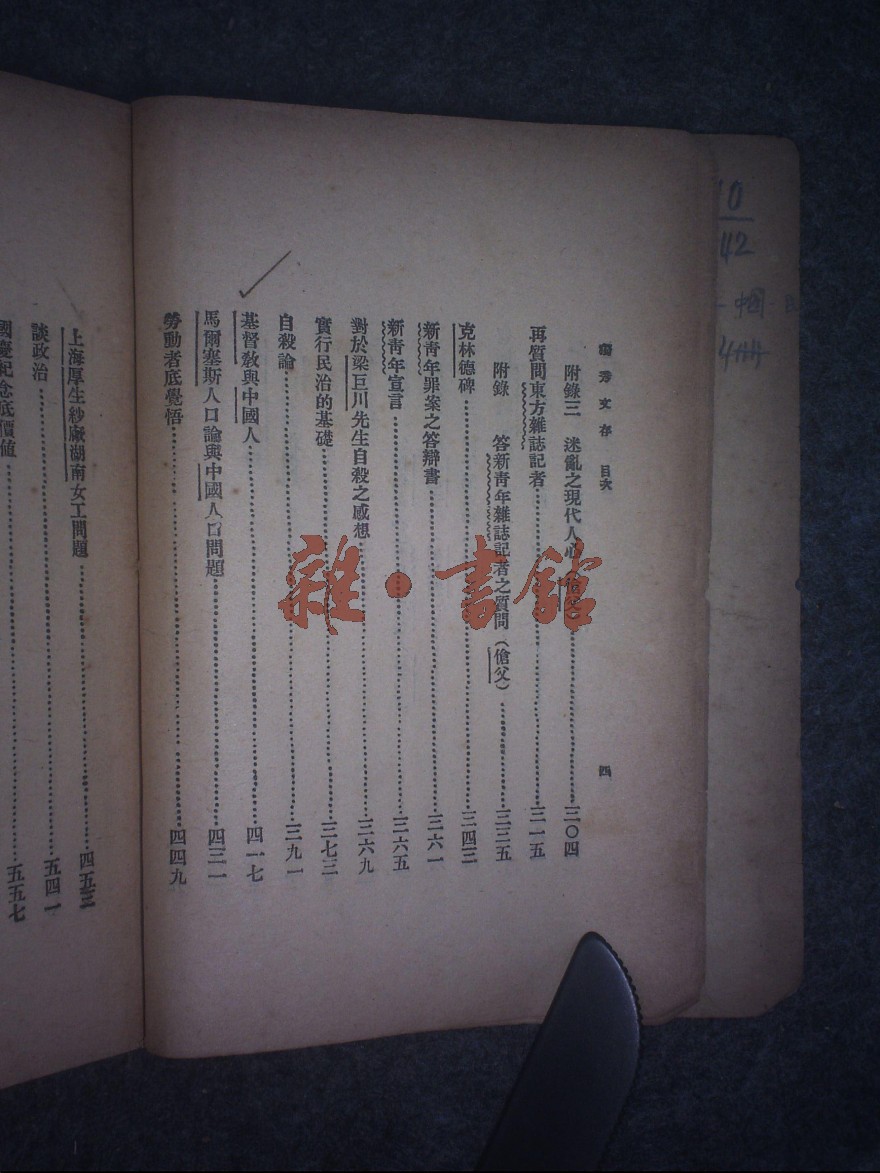 獨秀文存　目次　四
附錄三　迷亂之現代人心（傖父）……三〇四
再質問東方雜誌記者……三一五
附錄　答新靑年雜誌記者之質問（傖父）……三三五
克林德碑……三四三
新靑年罪案之答辯書……三六一
新靑年宣言……三六五
對於梁巨川先生自殺之感想……三六九
實行民治的基礎……三七三
自殺論……三九一
基督敎與中國人……四一七
馬爾塞斯人口論與中國人口問題……四三一
勞動者底覺悟……四四九
上海厚生紗廠湖南女工問題……四五三
談政治……五四一
國慶紀念底價値……五五七
雜·書館
42
中國